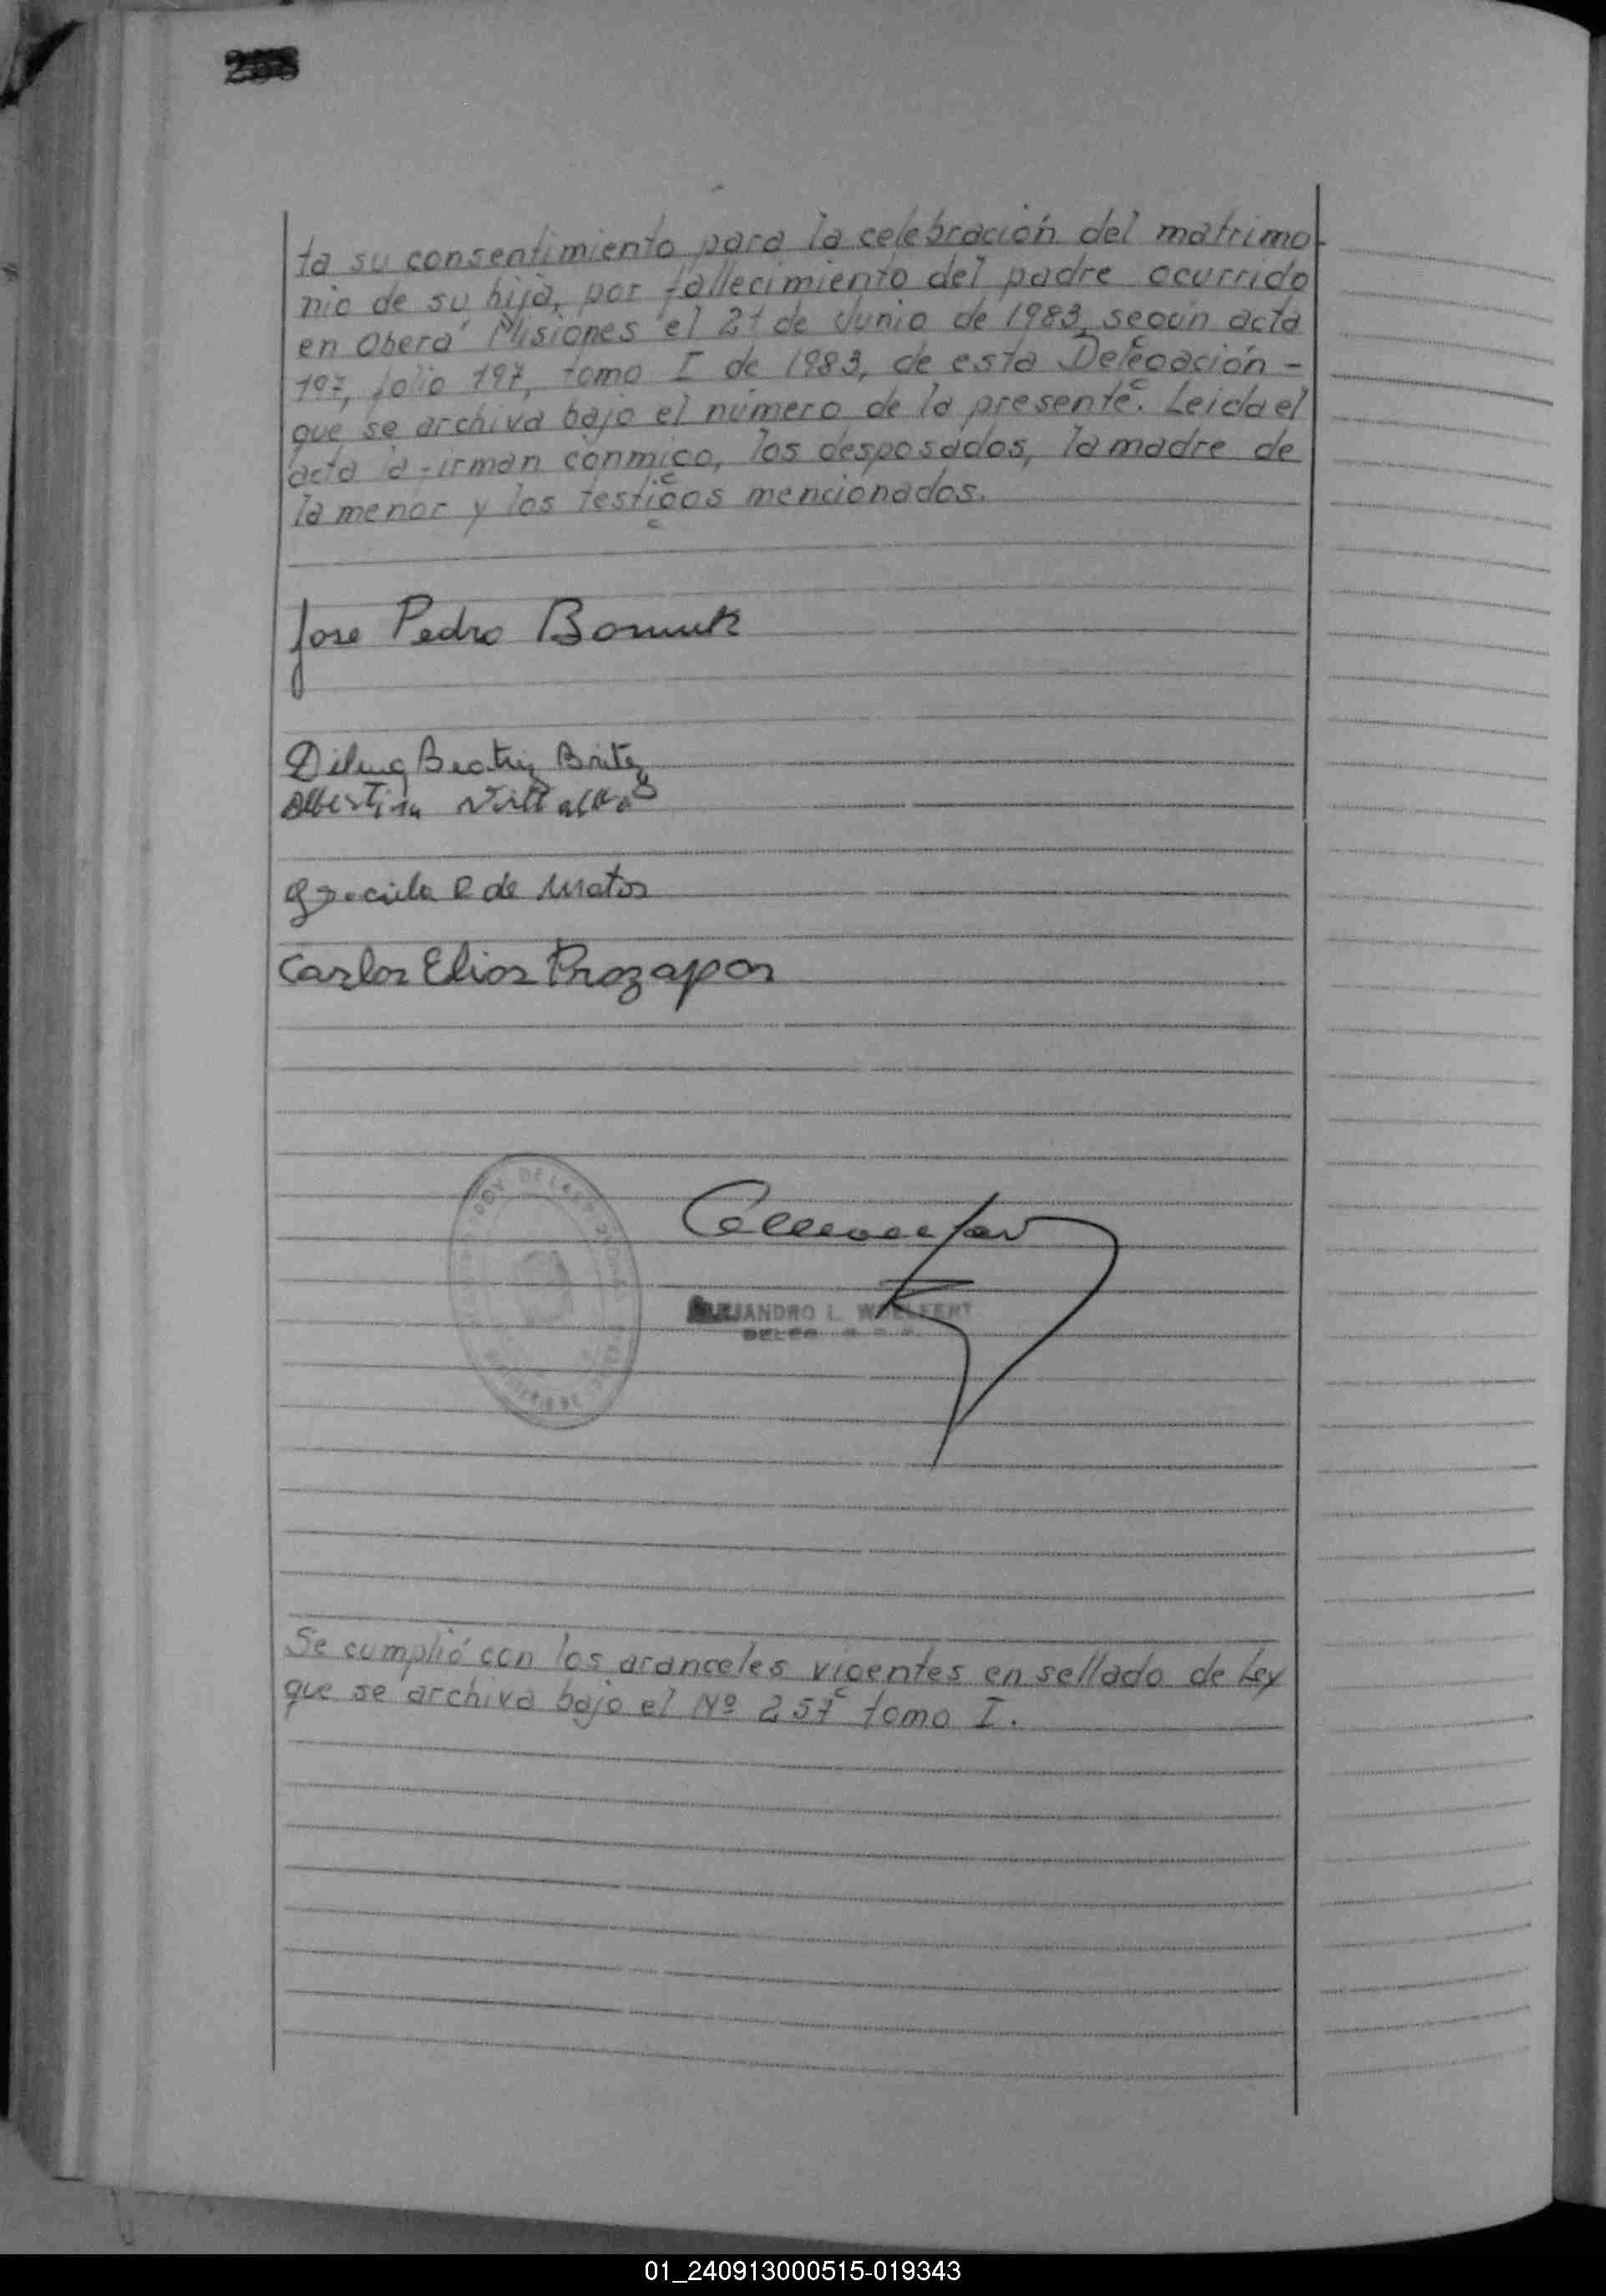 258
ta su consentimiento para la celebración del matrimo-
nio de su hija, por fallecimiento del padre ocurrido
en Oberá Misiones el 21 de Junio de 1983, según acta
197, folio 197, tomo I de 1983, de esta Delegación -
que se archiva bajo el número de la presente. Leida el
acta a firman conmigo, los desposados, la madre de
la menor y los testigos mencionados.
Jose Pedro
Beatriz Britez
Albertina Villalba
R de Matos
Carlos Elias
ALEJANDRO L. WOELFERT
Se cumplió con los aranceles vigentes en sellado de Ley
que se archiva bajo el Nº 257 tomo I.
01_240913000515-019343